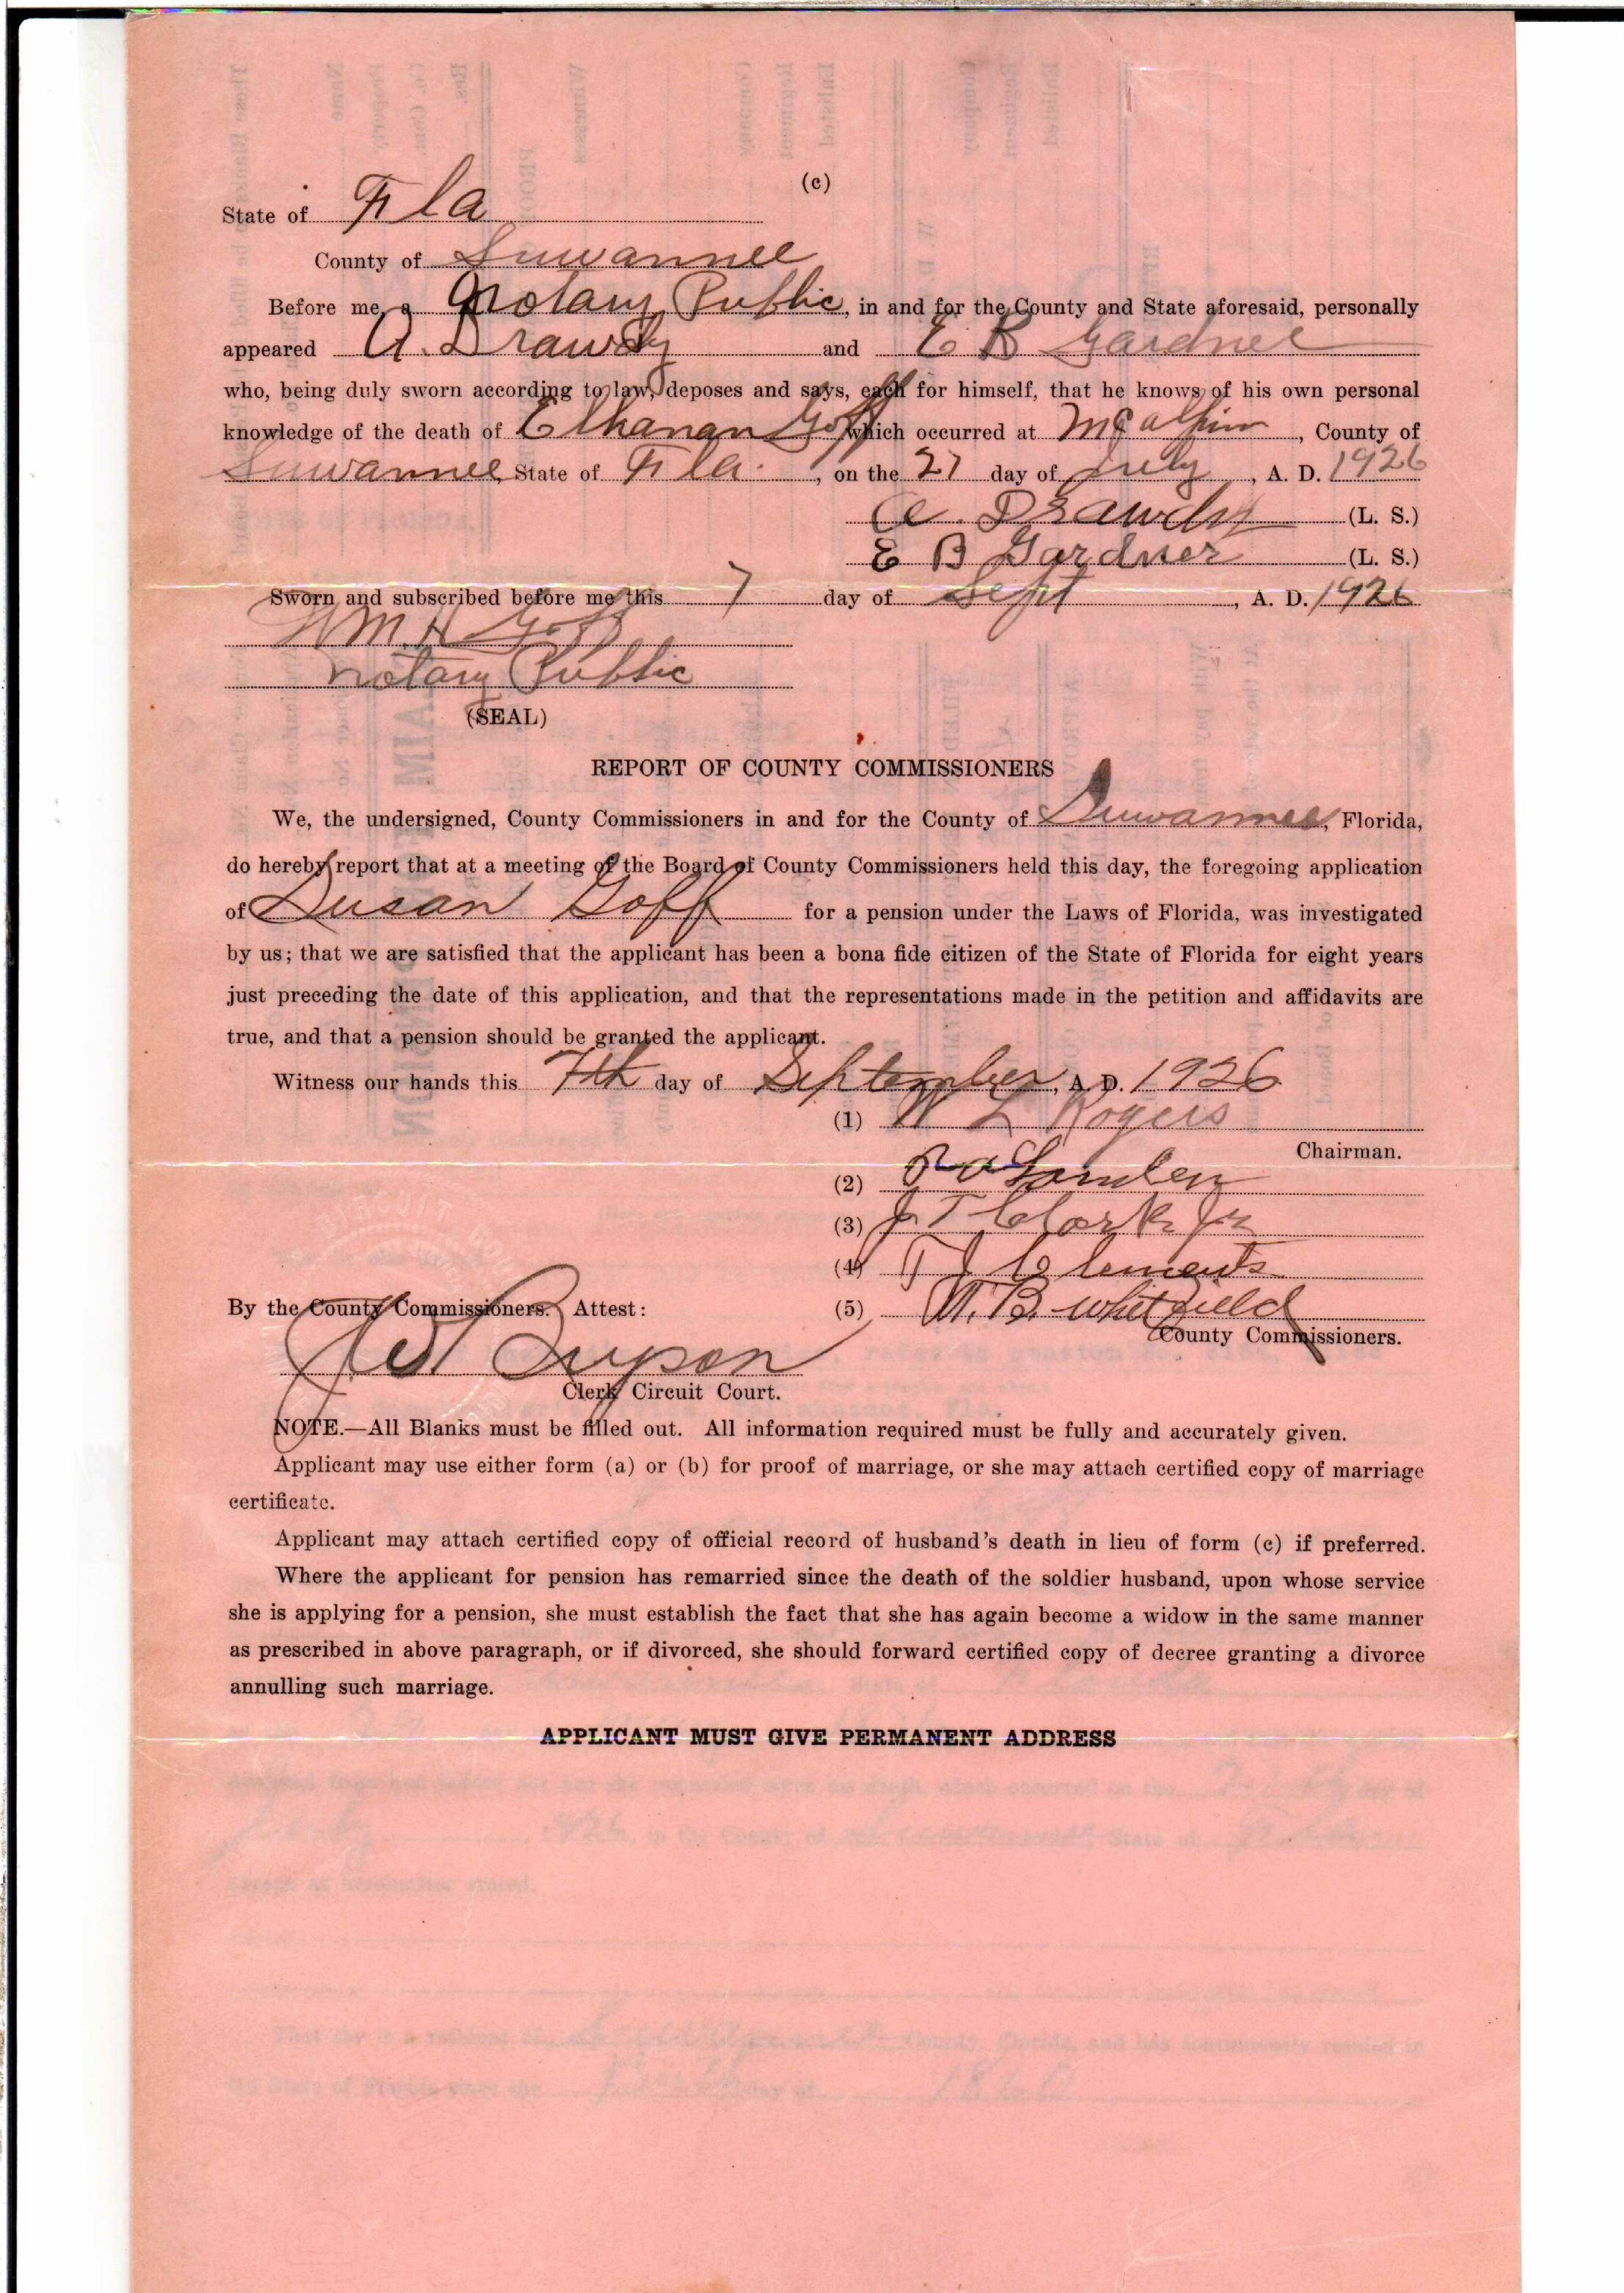 (c)
State of Fla
County of Suwannee
Before me, a Notary Public, in and for the County and State aforesaid, personally
appeared A. Drawdy and E B Gardner
who, being duly sworn according to law, deposes and says, each for himself, that he knows of his own personal
knowledge of the death of Elhanan Goff which occurred at McAlpin, County of
Suwannee State of Fla., on the 27 day of July, A. D. 1926
A. Drawdy (L. S.)
E B Gardner (L. S.)
Sworn and subscribed before me this 7 day of Sept, A. D. 1926
Wm. H Goff
Notary Public
(SEAL)
REPORT OF COUNTY COMMISSIONERS
We, the undersigned, County Commissioners in and for the County of Suwannee, Florida,
do hereby report that at a meeting of the Board of County Commissioners held this day, the foregoing application
of Susan Goff for a pension under the Laws of Florida, was investigated
by us; that we are satisfied that the applicant has been a bona fide citizen of the State of Florida for eight years
just preceding the date of this application, and that the representations made in the petition and affidavits are
true, and that a pension should be granted the applicant.
Witness our hands this 7th day of September, A. D. 1926
(1) W L Rogers
Chairman.
(2)
(3) J T Clark Jr
(4) T J Clements
By the County Commissioners. Attest: (5) W. B. Whitfield
County Commissioners.
Bryson
Clerk Circuit Court.
NOTE.—All Blanks must be filled out. All information required must be fully and accurately given.
Applicant may use either form (a) or (b) for proof of marriage, or she may attach certified copy of marriage
certificate.
Applicant may attach certified copy of official record of husband's death in lieu of form (c) if preferred.
Where the applicant for pension has remarried since the death of the soldier husband, upon whose service
she is applying for a pension, she must establish the fact that she has again become a widow in the same manner
as prescribed in above paragraph, or if divorced, she should forward certified copy of decree granting a divorce
annulling such marriage.
APPLICANT MUST GIVE PERMANENT ADDRESS